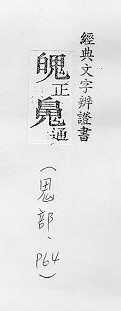 經典文字辨證書
魄正
通
(鬼部、P64)